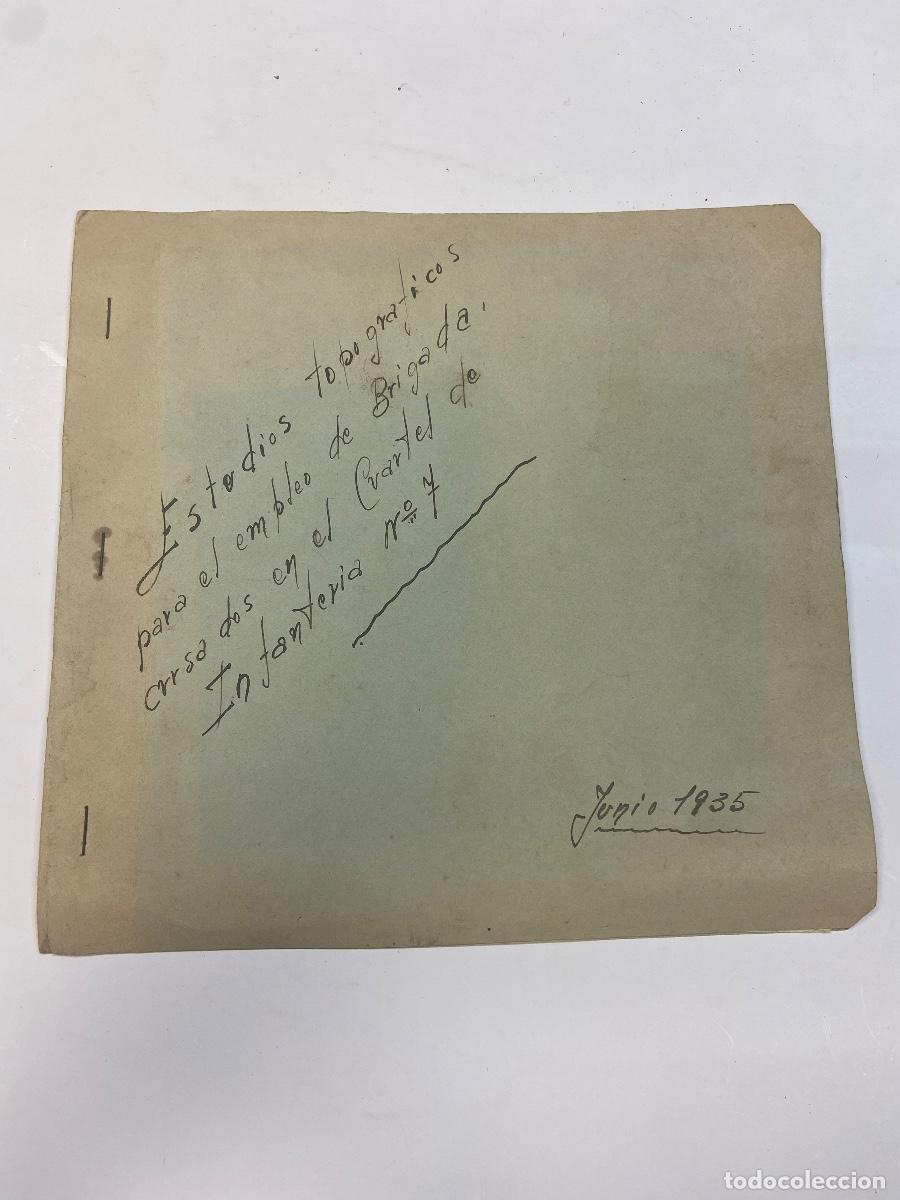 Estudios topograficos
para el empleo de Brigada.
cursados en el Cuartel de
Infanteria Nº 7
Junio 1935
todocoleccion